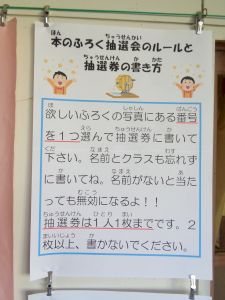 本のふろく抽選会のルールと
抽選券の書き方
欲しいふろくの写真にある番号
を１つ選んで抽選券に書いて
下さい。名前とクラスも忘れず
に書いてね。名前がないと当た
っても無効になるよ！！
抽選券は1人1枚までです。２
枚以上、書かないでください。